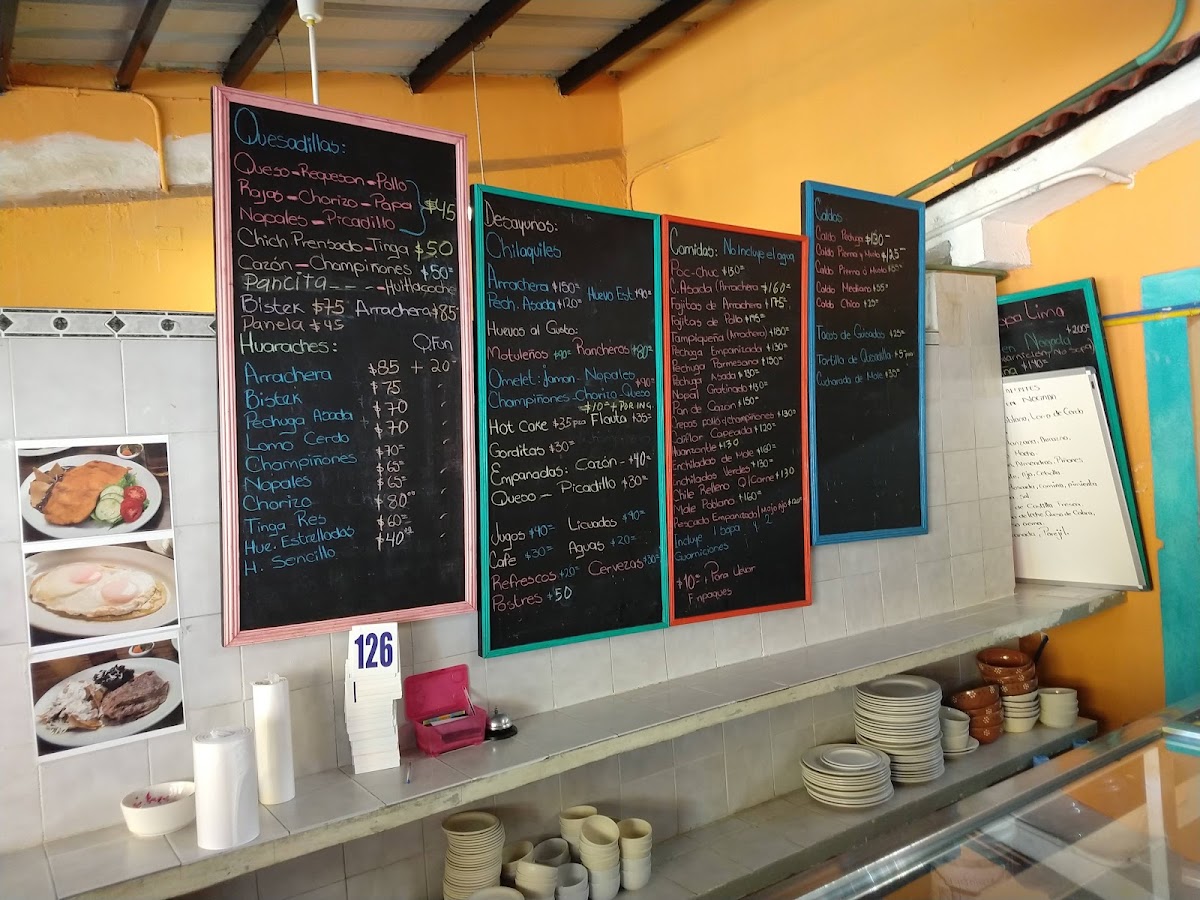 Quesadillas:
Queso-Requeson-Pollo
Rajas-Chorizo-Papa $45
Nopales-Picadillo
Chich.Prensado-Tinga $50
Cazón-Champiñones $50=
Pancita---Huitlacoche
Bistek $75 Arrachera $85
Panela $45
Huaraches: Q.Fun
Arrachera $85 + 20=
Bistek $75 "
Pechuga Asada $70 "
Lomo Cerdo $70 "
Champiñones $70= "
Nopales $65= "
Chorizo $65= "
Tinga Res $80.00 "
Hue. Estrellados $60= "
H. Sencillo $40.00 "
126
Desayunos:
Chilaquiles
Arrachera $150= Huevo Est. $90=
Pech. Asada $120=
Huevos al Gusto:
Motuleños $90= Rancheros $80=
Omelet: Jamon-Nopales $90=
Champiñones-Chorizo-Queso
$10= + POR ING.
Hot Cake $35 pza Flauta $35=
Gorditas $30=
Empanadas: Cazón-$40=
Queso-Picadillo $30=
Jugos $40= Licuados $40=
Café $30= Aguas $20=
Refrescos $20= Cervezas $30=
Postres $50
Comidas: No Incluye el agua
Poc-Chuc $130=
C. Asada (Arrachera $160=
Fajitas de Arrachera $175=
Fajitas de Pollo
Tampiqueña (Arrachera) $180=
Pechuga Empanizada $130=
Pechuga Parmesana $150=
Pechuga Asada $130=
Nopal Gratinado
Pan de Cazon $150=
Crepas pollo y champiñones $130=
Coliflor Capeada $120=
Huazontle $130
Enchiladas de Mole $160=
Enchiladas Verdes $130=
Chile Relleno Q/Carne $130
Mole Poblano $160=
Pescado Empanizado/Mojo Ajo $120=
Incluye 1 sopa y 2
Guarniciones
$10= Para Llevar
Empaques
Caldos
Caldo Pechuga $130=
Caldo Pierna y Muslo $125=
Caldo Pierna ó Muslo
Caldo Mediano $55=
Caldo Chico
Tacos de Guisados $25=
Tortilla de Quesadilla $5 pza
Cucharada de Mole
Sopa Lima
Nogada
$200=